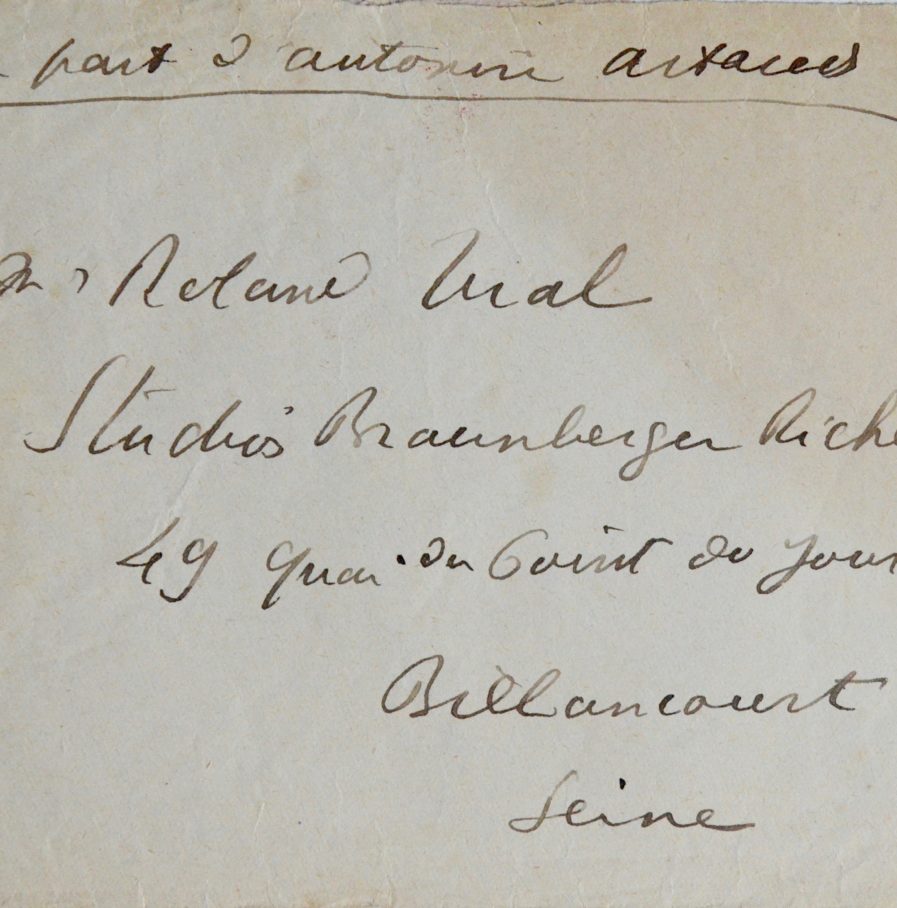 part d antonin artaud
Mr Roland Vial
Studios Braunberger Riche
49 quai du Point du Jour
Billancourt
Seine